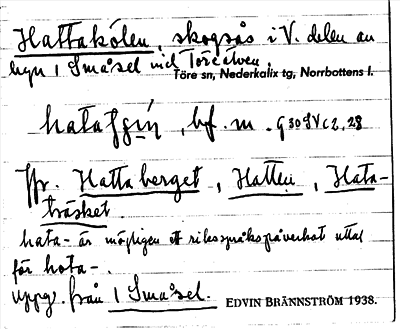 Hattakölen, skogsås i V. delen av
byn 1 Småsel vid Töreälven.
Töre sn, Nederkalix tg, Norrbottens l.
bf. m. G30SVc2,28
Jfr. Hattaberget, Hatten, Hata-
träsket.
hata- är möjligen ett riksspråkspåverkat uttal
för hota-.
Uppg. från 1 Småsel. EDVIN BRÄNNSTRÖM 1938.